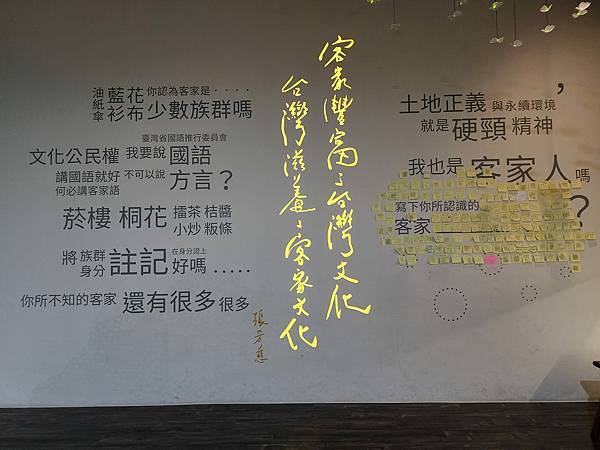 油紙傘 藍衫 花布 你認為客家是‧‧‧‧
少數族群嗎
臺灣省國語推行委員會
文化公民權 我要說 國語
講國語就好 不可以說 方言？
何必講客家語
菸樓 桐花 擂茶 桔醬
小炒 粄條
將 族群 身分 註記 在身分證上
好嗎‧‧‧‧‧
你所不知的客家 還有很多 很多
客家豐富了台灣文化
台灣滋養了客家文化
張芳慈
土地正義 與永續環境，
就是 硬頸 精神
我也是 客家人 嗎
寫下你所認識的
客家 ？